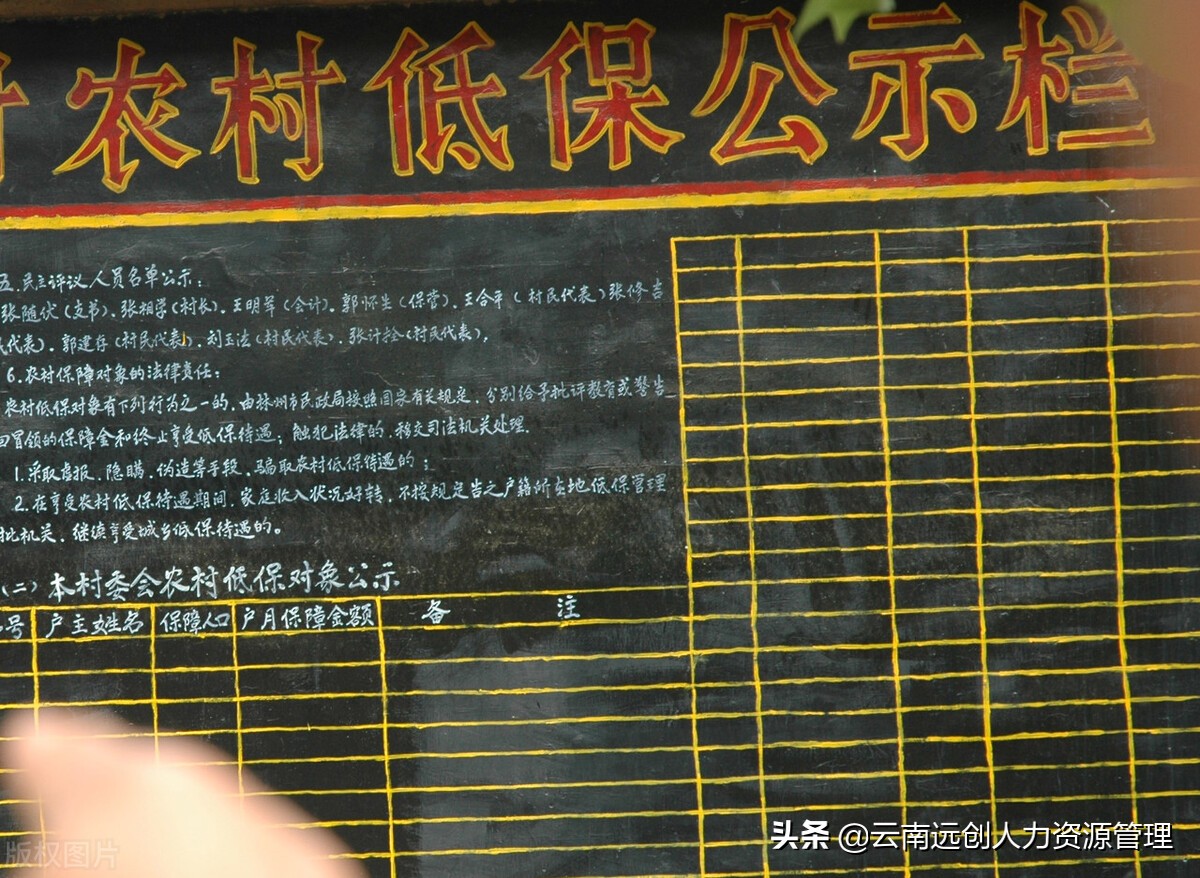 农村低保公示栏
五.民主评议人员名单公示:
张随伏(支书).张相学(村长).王明军(会计).郭怀生(保营).王合平(村民代表)张修吉
代表).郭建存(村民代表).刘玉法(村民代表).张计拴(村民代表),
6.农村保障对象的法律责任:
农村低保对象有下列行为之一的.由林州市民政局按照国家有关规定.分别给予批评教育或警告
回冒领的保障金和终止享受低保待遇;触犯法律的.移交司法机关处理.
1.采取虚报.隐瞒.伪造等手段.骗取农村低保待遇的;
2.在享受农村低保待遇期间.家庭收入状况好转.不按规定告之户籍所在地低保管理
批机关.继续享受城乡低保待遇的。
(二)本村委会农村低保对象公示
号 户主姓名 保障人口 户月保障金额 备 注
头条 @云南远创人力资源管理
版权图片